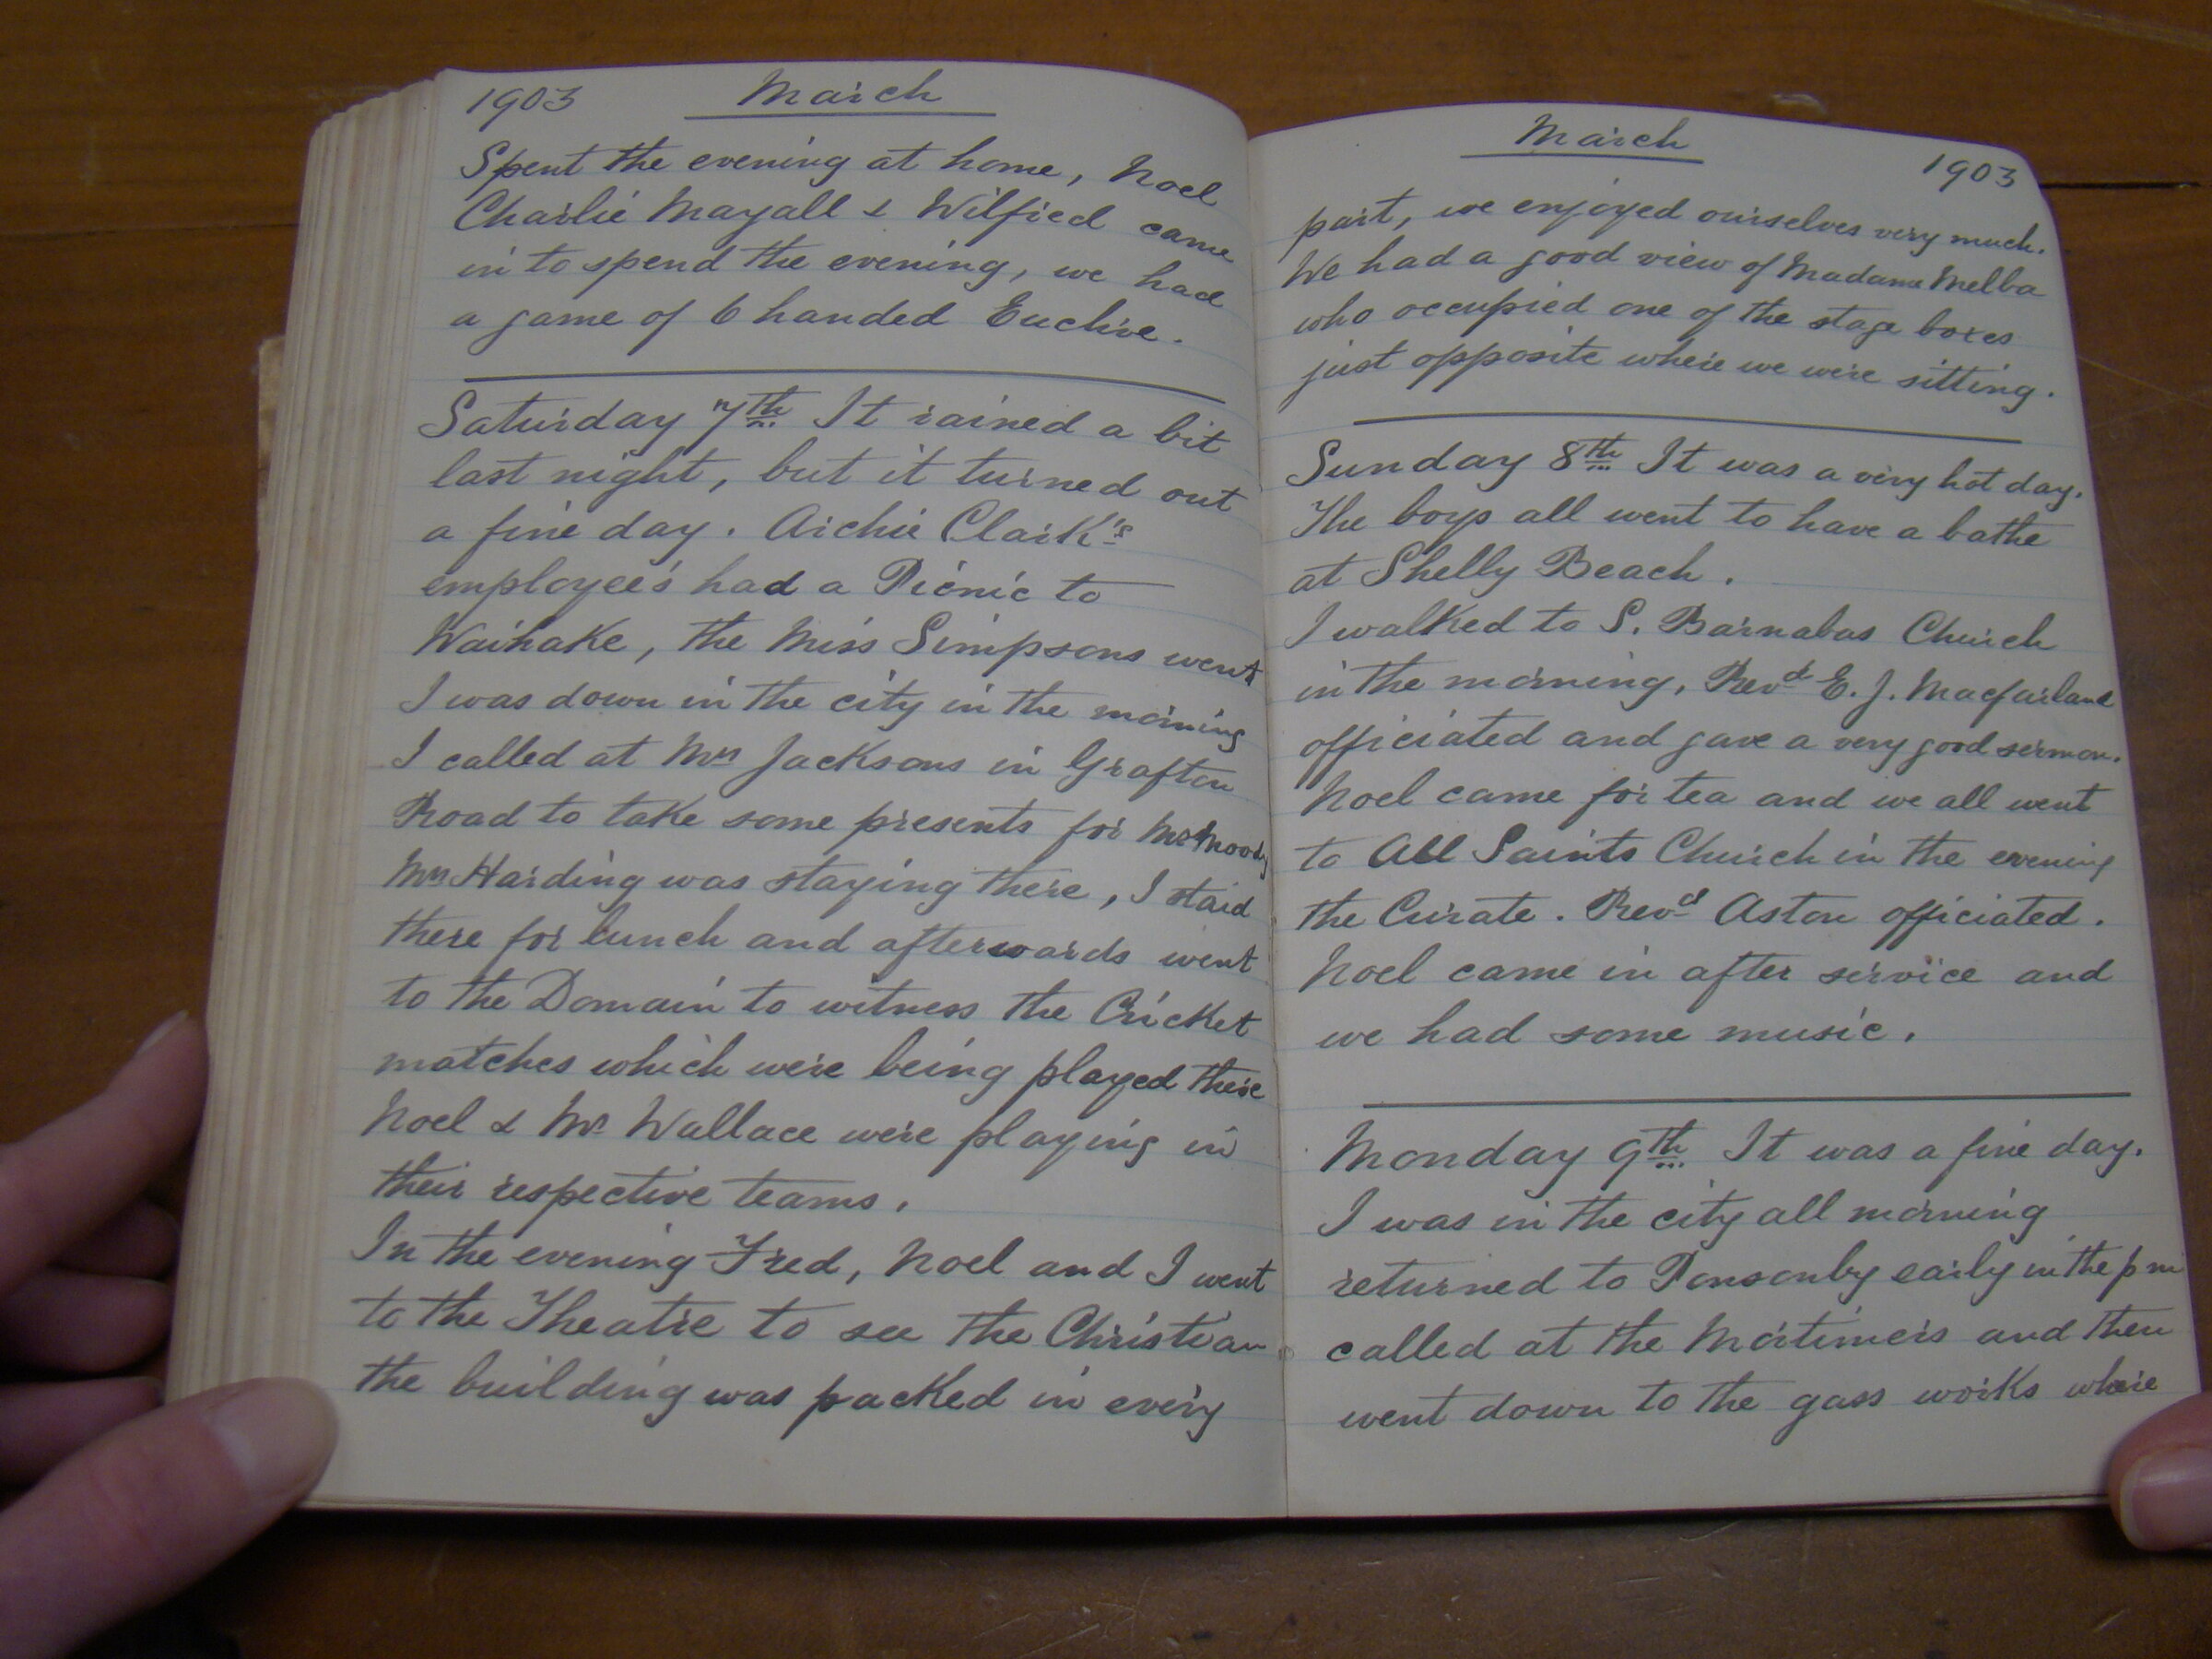 1903 March
Spent the evening at home, Noel
Charlie Mayall & Wilfred came
in to spend the evening, we had
a game of 6 handed Euchre.
Saturday 7th It rained a bit
last night, but it turned out
a fine day. Archie Clark's
employee's had a Picnic to
Waihake, the Miss Simpsons went
I was down in the city in the morning
I called at Mrs Jacksons in Grafton
Road to take some presents for Moody
Mrs Harding was staying there, I staid
there for lunch and afterwards went
to the Domain to witness the Cricket
matches which were being played there
Noel & Mr Wallace were playing in
their respective teams.
In the evening Fred, Noel and I went
to the Theatre to see the Christian
the building was packed in every
March 1903
part, we enjoyed ourselves very much.
We had a good view of Madame Melba
who occupied one of the stage boxes
just opposite where we were sitting.
Sunday 8th It was a very hot day.
The boys all went to have a bathe
at Shelly Beach.
I walked to S. Barnabas Church
in the morning, Revd E. J. Macfarlane
officiated and gave a very good sermon.
Noel came for tea and we all went
to All Saints Church in the evening
the Curate. Revd Aston officiated.
Noel came in after service and
we had some music.
Monday 9th It was a fine day.
I was in the city all morning
returned to Ponsonby early in the pm
called at the Mortimers and then
went down to the gass works where